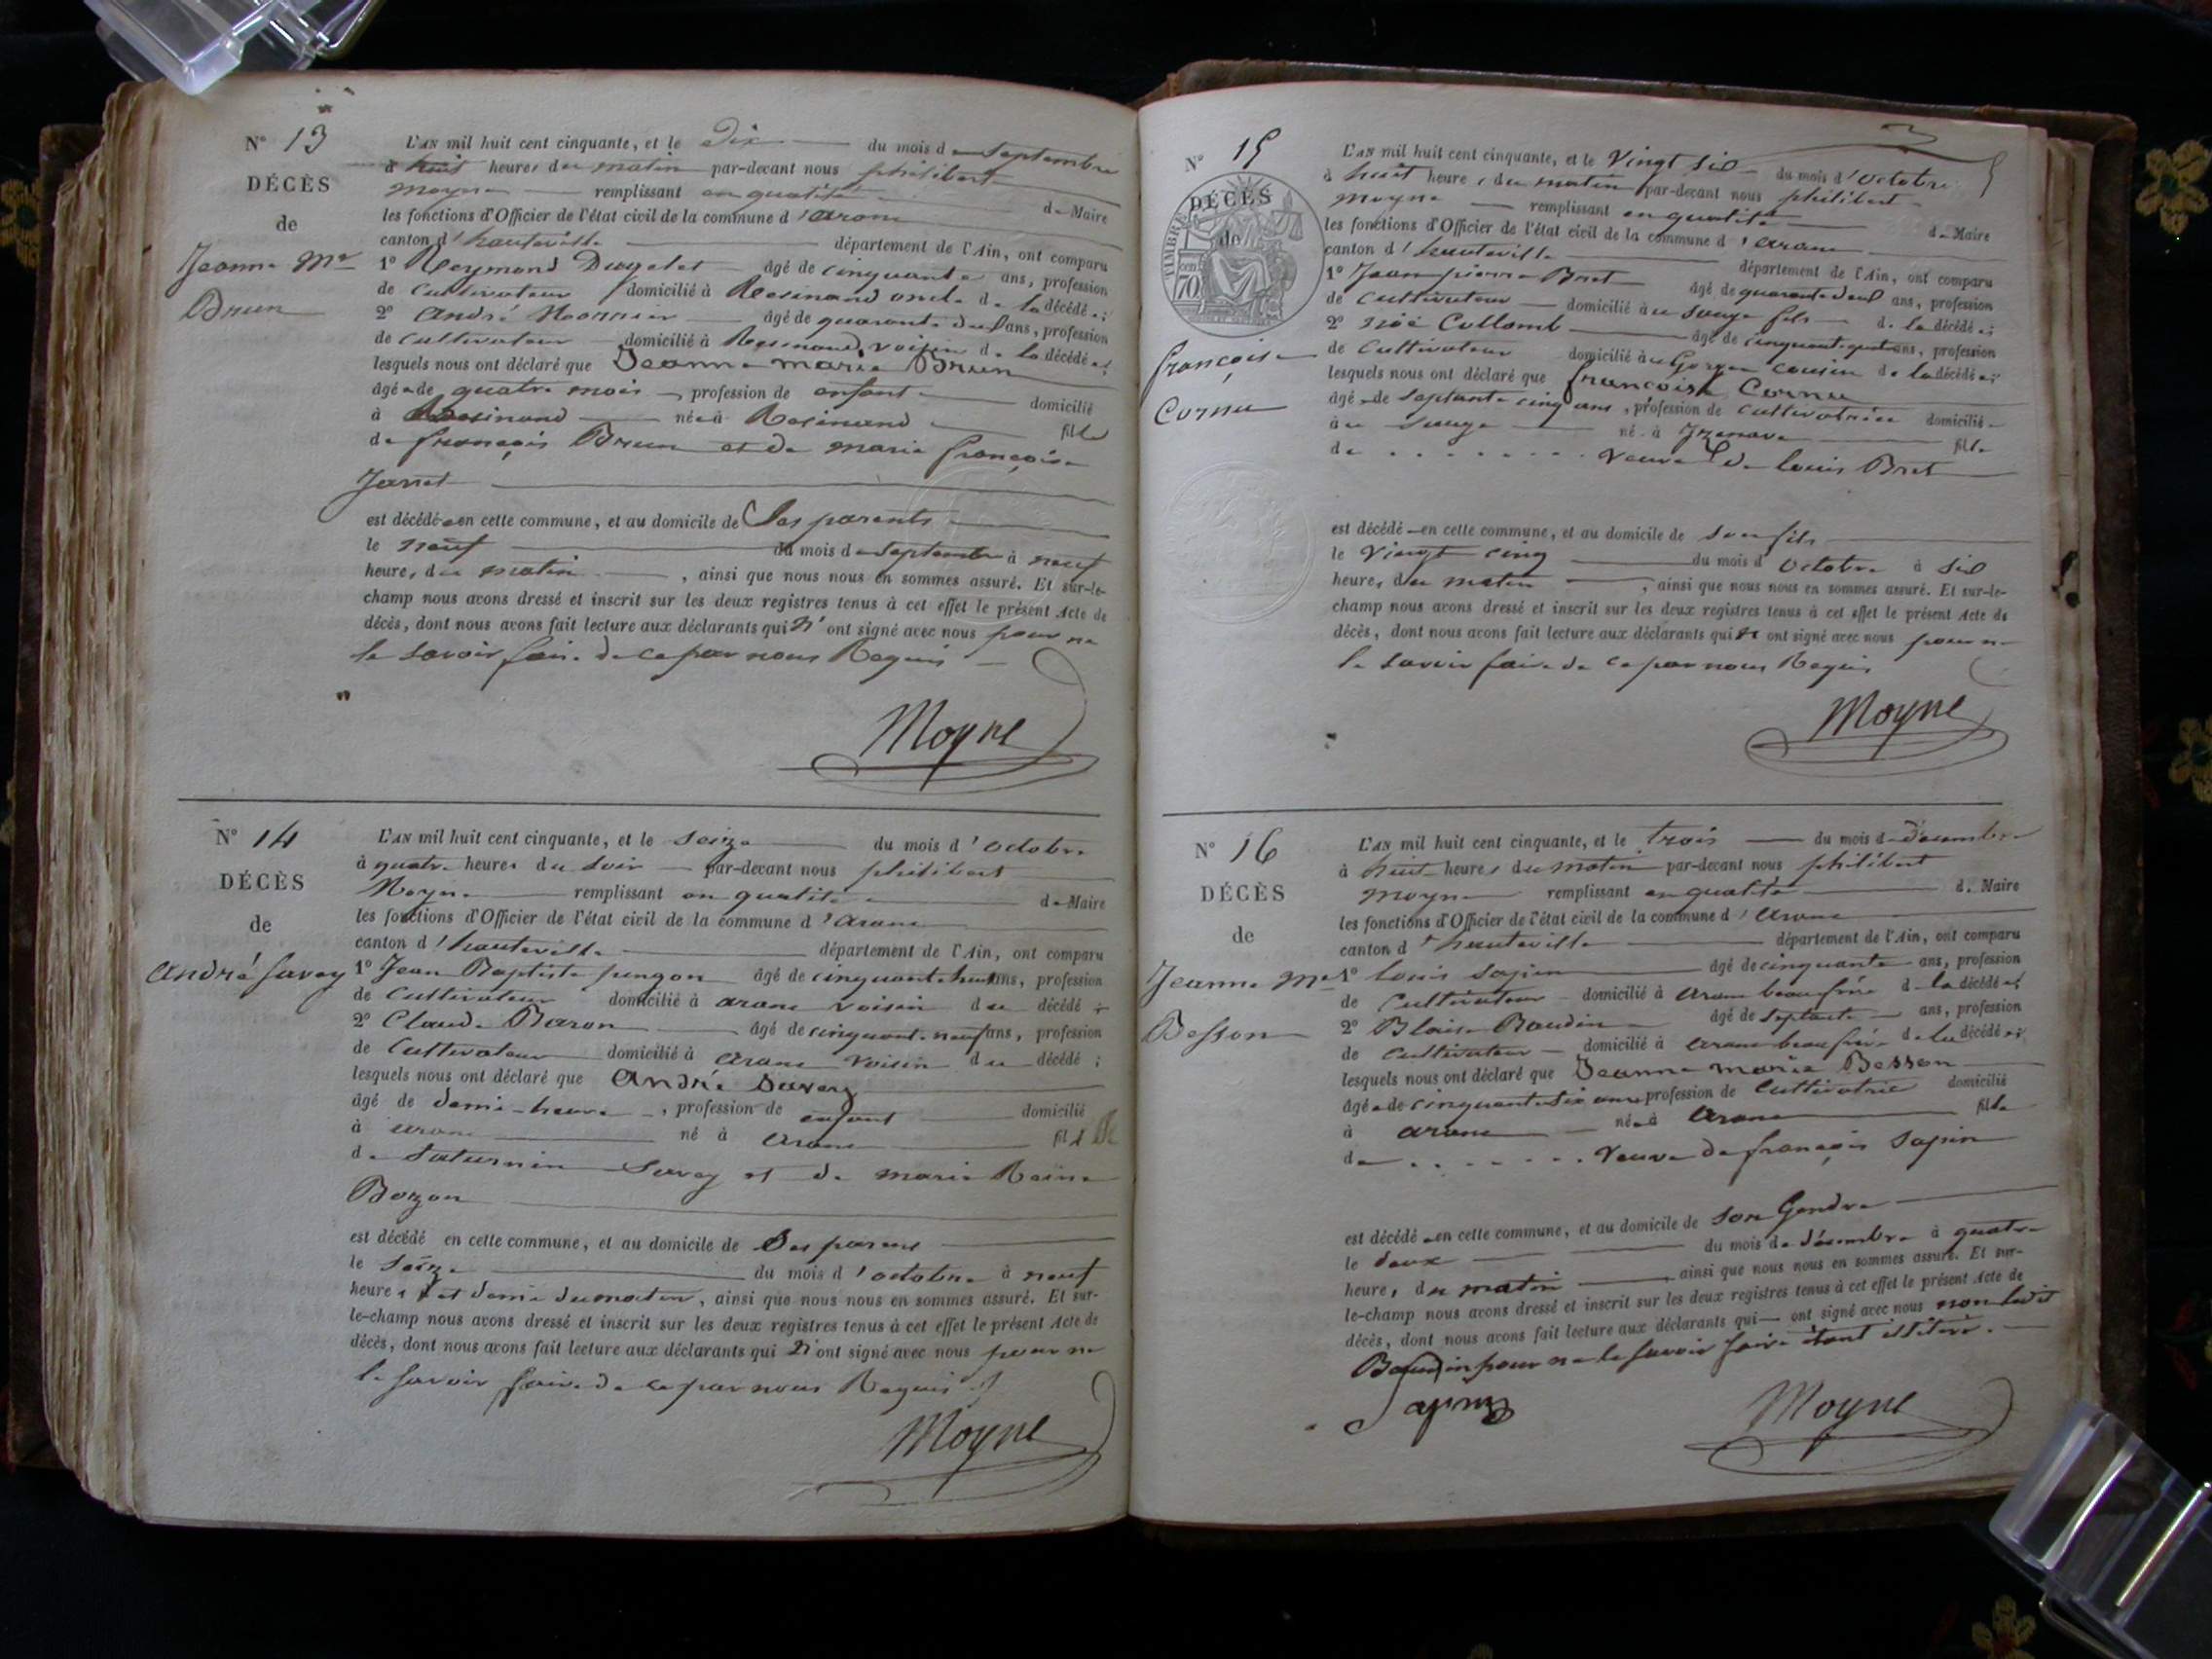 N° 13
DÉCÈS
de
Jeanne Mie
Brun
L'AN mil huit cent cinquante, et le Dix du mois de Septembre
à huit heures du matin par-devant nous philibert
moyne remplissant en qualité de Maire
les fonctions d'Officier de l'état civil de la commune d'aranc
canton d'hauteville département de l'Ain, ont comparu
1° Reymond âgé de cinquante ans, profession
de Cultivateur domicilié à Resinand oncle de la décédée;
2° André âgé de quarante deux ans, profession
de cultivateur domicilié à Resinand, voisin de la décédée;
lesquels nous ont déclaré que Jeanne marie Brun
âgée de quatre mois profession de enfant domicilié
à Resinand née à Resinand fille
de françois Brun et de marie françoise
Jarret
est décédée en cette commune, et au domicile de Ses parents
le neuf du mois de Septembre à neuf
heures du matin, ainsi que nous nous en sommes assuré. Et sur-le-
champ nous avons dressé et inscrit sur les deux registres tenus à cet effet le présent Acte de
décès, dont nous avons fait lecture aux déclarants qui n'ont signé avec nous pour ne
le savoir faire de ce par nous Requis
Moyne
N° 14
DÉCÈS
de
André Savey
L'AN mil huit cent cinquante, et le Seize du mois d'octobre
à quatre heures du soir par-devant nous philibert
Moyne remplissant en qualité de Maire
les fonctions d'Officier de l'état civil de la commune d'aranc
canton d'hauteville département de l'Ain, ont comparu
1° Jean Baptiste pungon âgé de cinquante huit ans, profession
de Cultivateur domicilié à aranc voisin du décédé;
2° Claude Baron âgé de cinquante neuf ans, profession
de Cultivateur domicilié à aranc voisin du décédé;
lesquels nous ont déclaré que André Savey
âgé de demi-heure, profession de enfant domicilié
à aranc né à aranc fils
de Saturnin Savey et de marie Reine
Bozon
est décédé en cette commune, et au domicile de Ses parens
le Seize du mois d'octobre à neuf
heures et demie du matin, ainsi que nous nous en sommes assuré. Et sur-
le-champ nous avons dressé et inscrit sur les deux registres tenus à cet effet le présent Acte de
décès, dont nous avons fait lecture aux déclarants qui n'ont signé avec nous pour ne
le savoir faire de ce par nous Requis
Moyne
N° 15
DÉCÈS
de
TIMBRE
70
françoise
Cornu
L'AN mil huit cent cinquante, et le Vingt Six du mois d'octobre
à huit heures du matin par-devant nous philibert
moyne remplissant en qualité de Maire
les fonctions d'Officier de l'état civil de la commune d'aranc
canton d'hauteville département de l'Ain, ont comparu
1° Jean pierre Bret âgé de quarante deux ans, profession
de cultivateur domicilié au Sauge fils de la décédée;
2° Noé Collomb âgé de cinquante quatre ans, profession
de Cultivateur domicilié au cousin de la décédée;
lesquels nous ont déclaré que françoise Cornu
âgée de Septante cinq ans, profession de cultivatrice domiciliée
au Sauge né à Izenave fille
de . . . . . . . . Veuve de louis Bret
est décédé en cette commune, et au domicile de son fils
le Vingt cinq du mois d'octobre à Six
heures du matin, ainsi que nous nous en sommes assuré. Et sur-le-
champ nous avons dressé et inscrit sur les deux registres tenus à cet effet le présent Acte de
décès, dont nous avons fait lecture aux déclarants qui n'ont signé avec nous pour ne
le savoir faire de ce par nous Requis
Moyne
N° 16
DÉCÈS
de
Jeanne Mie
Besson
L'AN mil huit cent cinquante, et le trois du mois de Décembre
à huit heures du matin par-devant nous philibert
moyne remplissant en qualité de Maire
les fonctions d'Officier de l'état civil de la commune d'aranc
canton d'hauteville département de l'Ain, ont comparu
1° louis Sapin âgé de cinquante ans, profession
de Cultivateur domicilié à aranc beau frère de la décédée;
2° Blaise Baudin âgé de Septante ans, profession
de cultivateur domicilié à aranc beau frère de la décédée;
lesquels nous ont déclaré que Jeanne marie Besson
âgée de cinquante Six ans profession de Cultivatrice domicilié
à aranc née à aranc fille
de . . . . . . Veuve de françois Sapin
est décédée en cette commune, et au domicile de son Gendre
le deux du mois de décembre à quatre
heures du matin, ainsi que nous nous en sommes assuré. Et sur-
le-champ nous avons dressé et inscrit sur les deux registres tenus à cet effet le présent Acte de
décès, dont nous avons fait lecture aux déclarants qui ont signé avec nous non ledit
Baudin pour ne le savoir faire étant illitéré.
Sapin
Moyne